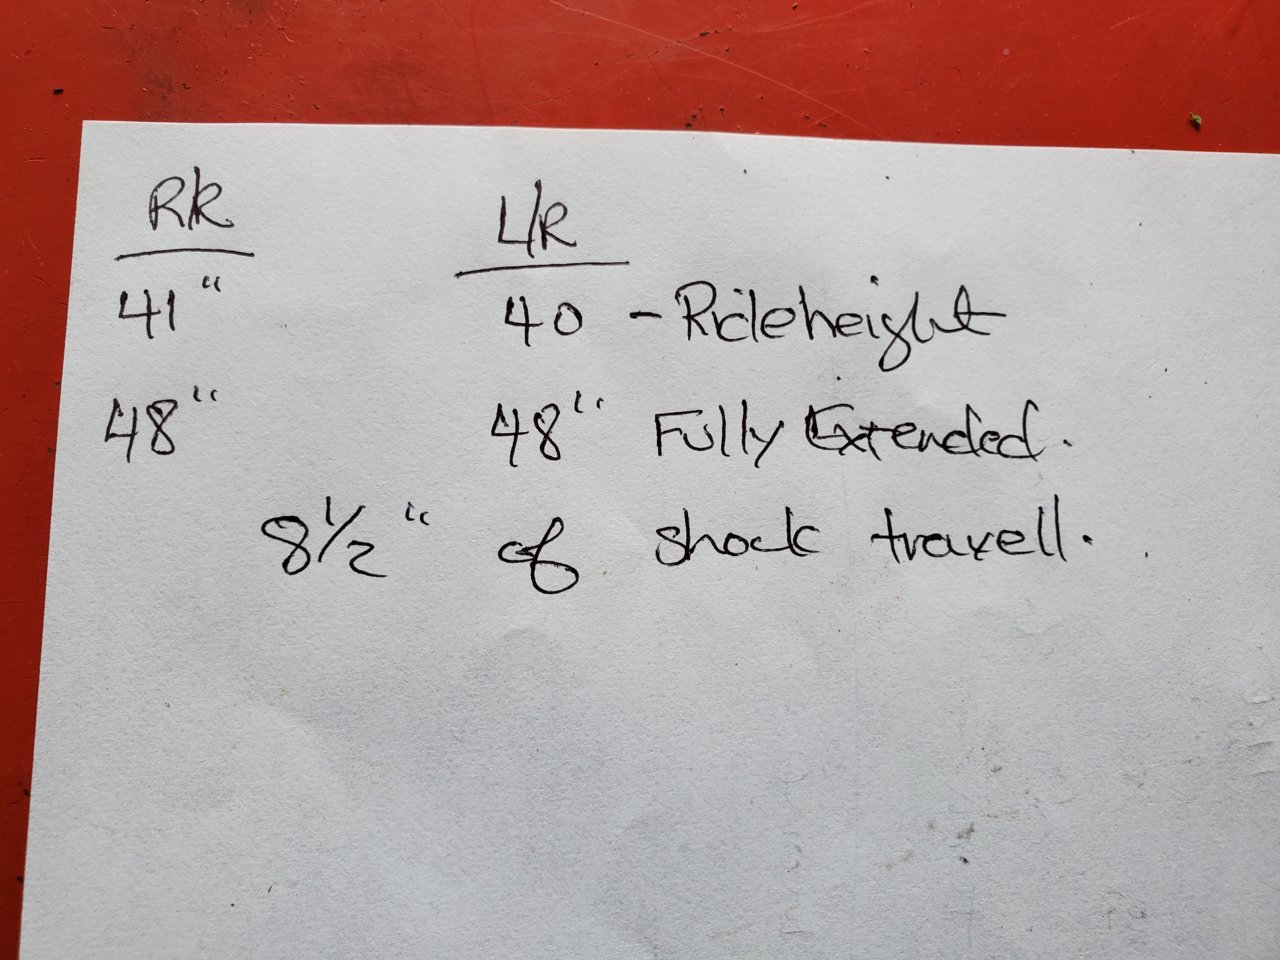 R/R L/R
41" 40 - Rideheight
48" 48" Fully Extended.
8 1/2" of shock travell.